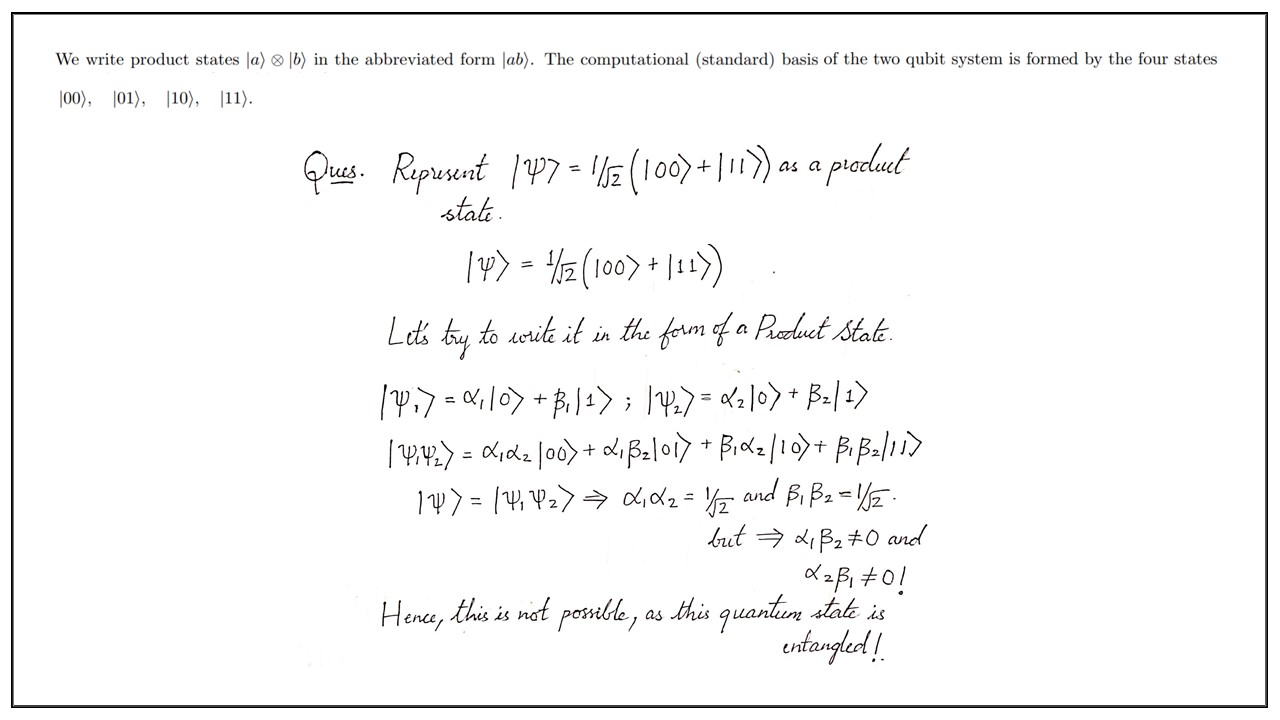 We write product states |a⟩ ⊗ |b⟩ in the abbreviated form |ab⟩. The computational (standard) basis of the two qubit system is formed by the four states
|00⟩, |01⟩, |10⟩, |11⟩.
Ques. Represent |Ψ⟩ = 1/√2 (|00⟩ + |11⟩) as a product
state.
|Ψ⟩ = 1/√2 (|00⟩ + |11⟩)
Let's try to write it in the form of a Product State.
|Ψ₁⟩ = α₁|0⟩ + β₁|1⟩ ; |Ψ₂⟩ = α₂|0⟩ + β₂|1⟩
|Ψ₁Ψ₂⟩ = α₁α₂|00⟩ + α₁β₂|01⟩ + β₁α₂|10⟩ + β₁β₂|11⟩
|Ψ⟩ = |Ψ₁Ψ₂⟩ ⇒ α₁α₂ = 1/√2 and β₁β₂ = 1/√2.
but ⇒ α₁β₂ ≠ 0 and
α₂β₁ ≠ 0!
Hence, this is not possible, as this quantum state is
entangled!